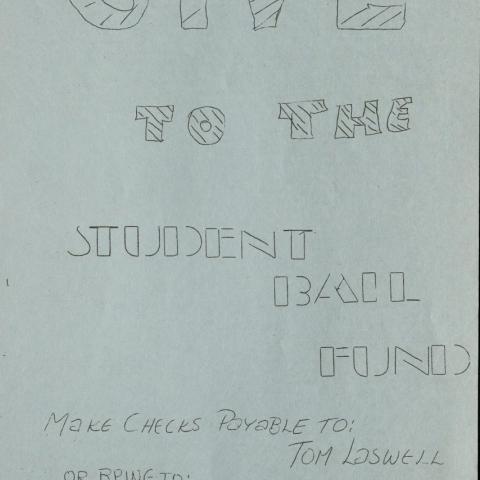 GIVE
TO THE
STUDENT
BAIL
FUND
MAKE CHECKS PAYABLE TO:
TOM LASWELL
OR BRING TO: